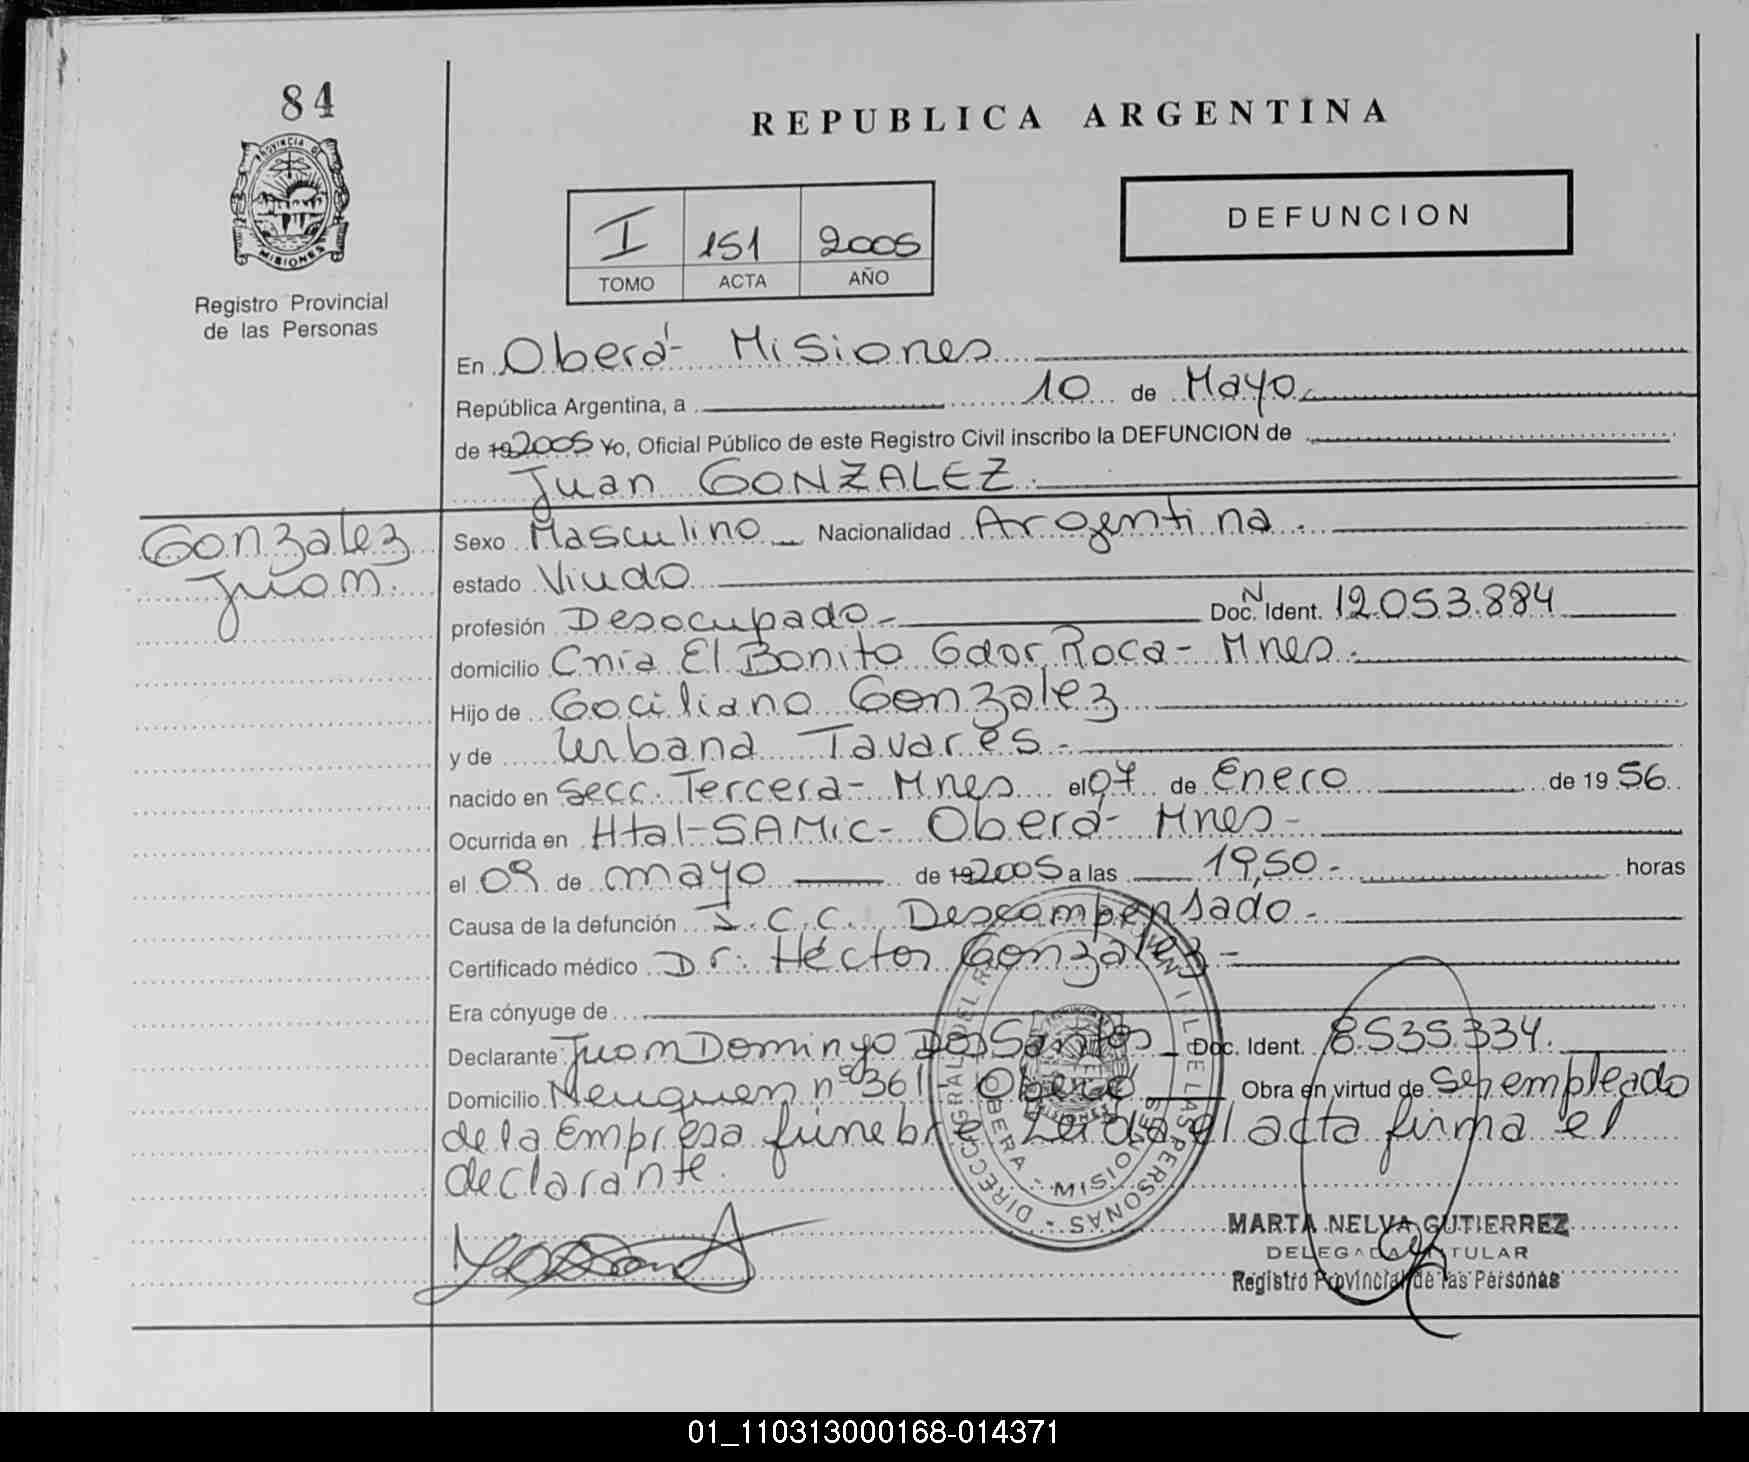 84
REPUBLICA ARGENTINA
PROVINCIA DE
MISIONES
I 151 2005
TOMO ACTA AÑO
DEFUNCION
Registro Provincial
de las Personas
En Oberá- Misiones
República Argentina, a 10 de Mayo
de 19 2005 Yo, Oficial Público de este Registro Civil inscribo la DEFUNCION de
Juan GONZALEZ.
Gonzalez
Juan.
Sexo Masculino Nacionalidad Argentina.
estado Viudo
profesión Desocupado- Doc. N Ident. 12.053.884
domicilio Cnia El Bonito Gdor Roca- Mnes.
Hijo de Gociliano Gonzalez
y de Urbana Tavares-
nacido en Secc. Tercera- Mnes el 07 de Enero de 19 56
Ocurrida en Htal-SAMic- Oberá- Mnes-
el 09 de mayo de 19 2005 a las 19,50- horas
Causa de la defunción I.C.C. Descompensado-
Certificado médico Dr. Héctor Gonzalez-
Era cónyuge de
Declarante Juan Domingo Dos Santos Doc. Ident. 8535334.
Domicilio Neuquen nº 361- Oberá Obra en virtud de ser empleado
de la Empresa fúnebre Leida el acta firma el
declarante.
OBERA - MISIONES
MARTA NELVA GUTIERREZ
DELEGADA TITULAR
Registro Provincial de las Personas
01_110313000168-014371